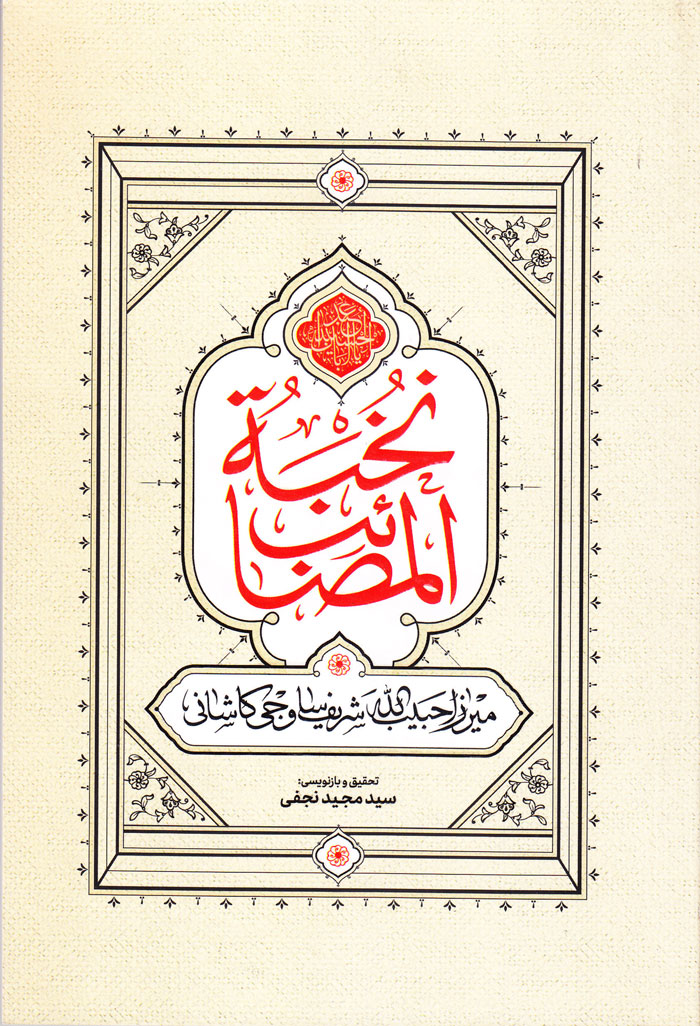 یا اباعبدالله الحسین
نُخبَةُ
المَصائب
میرزا حبیب‌الله شریف ساوجی کاشانی
تحقیق و بازنویسی:
سید مجید نجفی